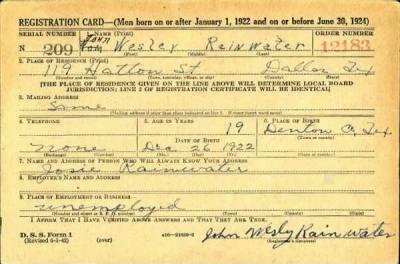 REGISTRATION CARD—(Men born on or after January 1, 1922 and on or before June 30, 1924)
SERIAL NUMBER 1. NAME (Print) ORDER NUMBER
N 209 John Tom Wesley Rainwater 12183
2. PLACE OF RESIDENCE (Print)
119 Hatton St Dallas Tex
[THE PLACE OF RESIDENCE GIVEN ON THE LINE ABOVE WILL DETERMINE LOCAL BOARD
JURISDICTION; LINE 2 OF REGISTRATION CERTIFICATE WILL BE IDENTICAL]
3. MAILING ADDRESS
Same
[Mailing address if other than place indicated on line 2. If same insert word same]
4. TELEPHONE 5. AGE IN YEARS 6. PLACE OF BIRTH
19 Denton Co, Tex
DATE OF BIRTH
None Dec 26 1922
(Exchange) (Number) (Mo.) (Day) (Yr.) (State or country)
7. NAME AND ADDRESS OF PERSON WHO WILL ALWAYS KNOW YOUR ADDRESS
Josie Rainwater
8. EMPLOYER'S NAME AND ADDRESS
9. PLACE OF EMPLOYMENT OR BUSINESS
unemployed
I AFFIRM THAT I HAVE VERIFIED ABOVE ANSWERS AND THAT THEY ARE TRUE.
D. S. S. Form 1
(over) John Wesly Rainwater